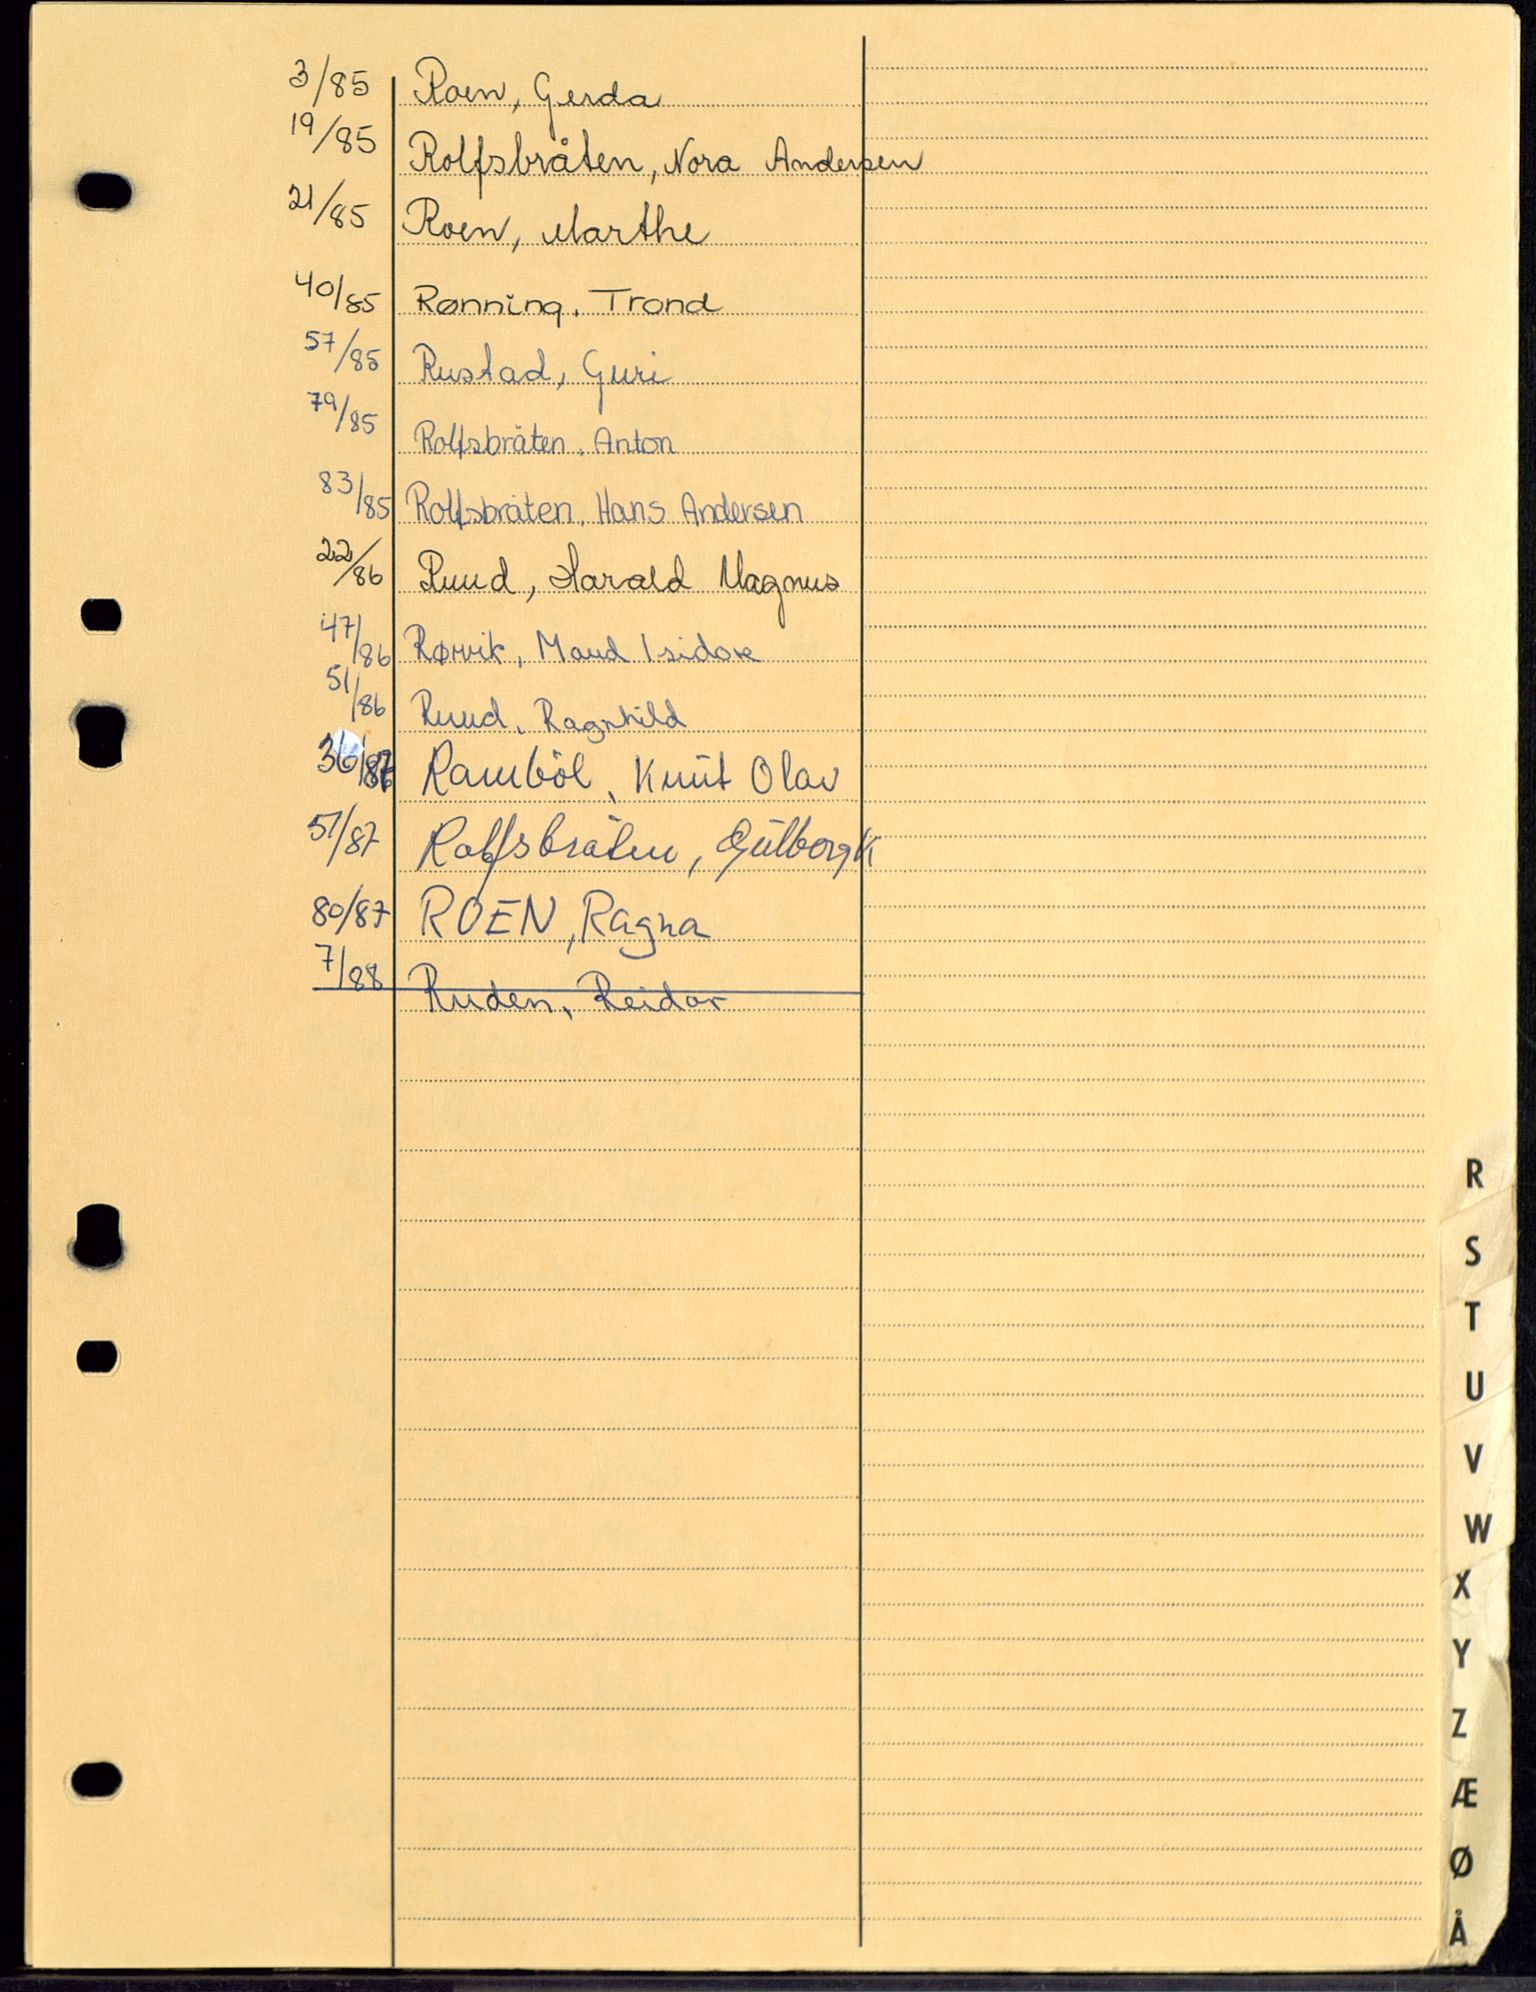 3/85 Roen, Gerda
19/85 Rolfsbråten, Nora Andersen
21/85 Roen, Marthe
40/85 Rønning, Trond
57/85 Rustad, Guri
79/85 Rolfsbråten, Anton
83/85 Rolfsbråten, Hans Andersen
22/86 Ruud, Harald Magnus
47/86 Rørvik, Maud Isidore
51/86 Ruud, Ragnhild
36/87 Ramböl, Knut Olav
51/87 Rolfsbråten, Gulborg K
80/87 ROEN, Ragna
7/88 Ruden, Reidar
R
S
T
U
V
W
X
Y
Z
Æ
Ø
Å